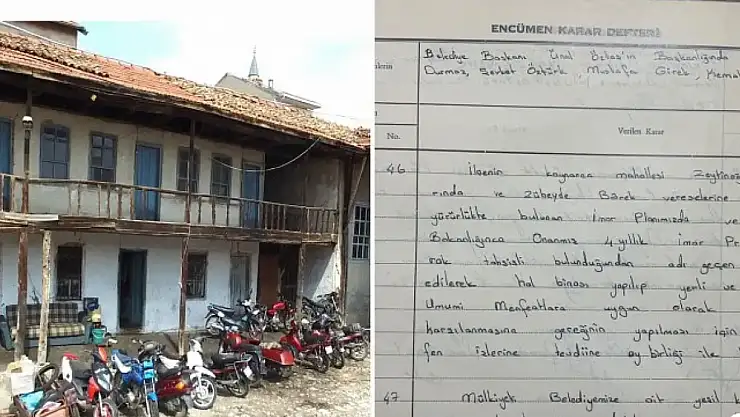 ENCÜMEN KARAR DEFTERİ
Belediye Başkanı Ünal Öztaş'ın Başkanlığında
Durmaz, Serbat Öztürk, Mustafa Girek, Kemal
No.
Verilen Karar
46 İlçenin kaynarca mahallesi Zeytinoğ
rında ve Zübeyde Bârek vereselerine
yürürlükte bulunan İmar Planımızda ve
Bakanlığınca Onanmış 4 yıllık imar Pr
rak tahsisli bulunduğundan adı geçen
edilerek hal binası yapılıp yerli ve
Umumi Menfeatlara uygun olarak
karşılanmasına gereğinin yapılması için
fen işlerine tevdiine oy birliği ile
47 Mülkiyeti Belediyemize ait yeşil